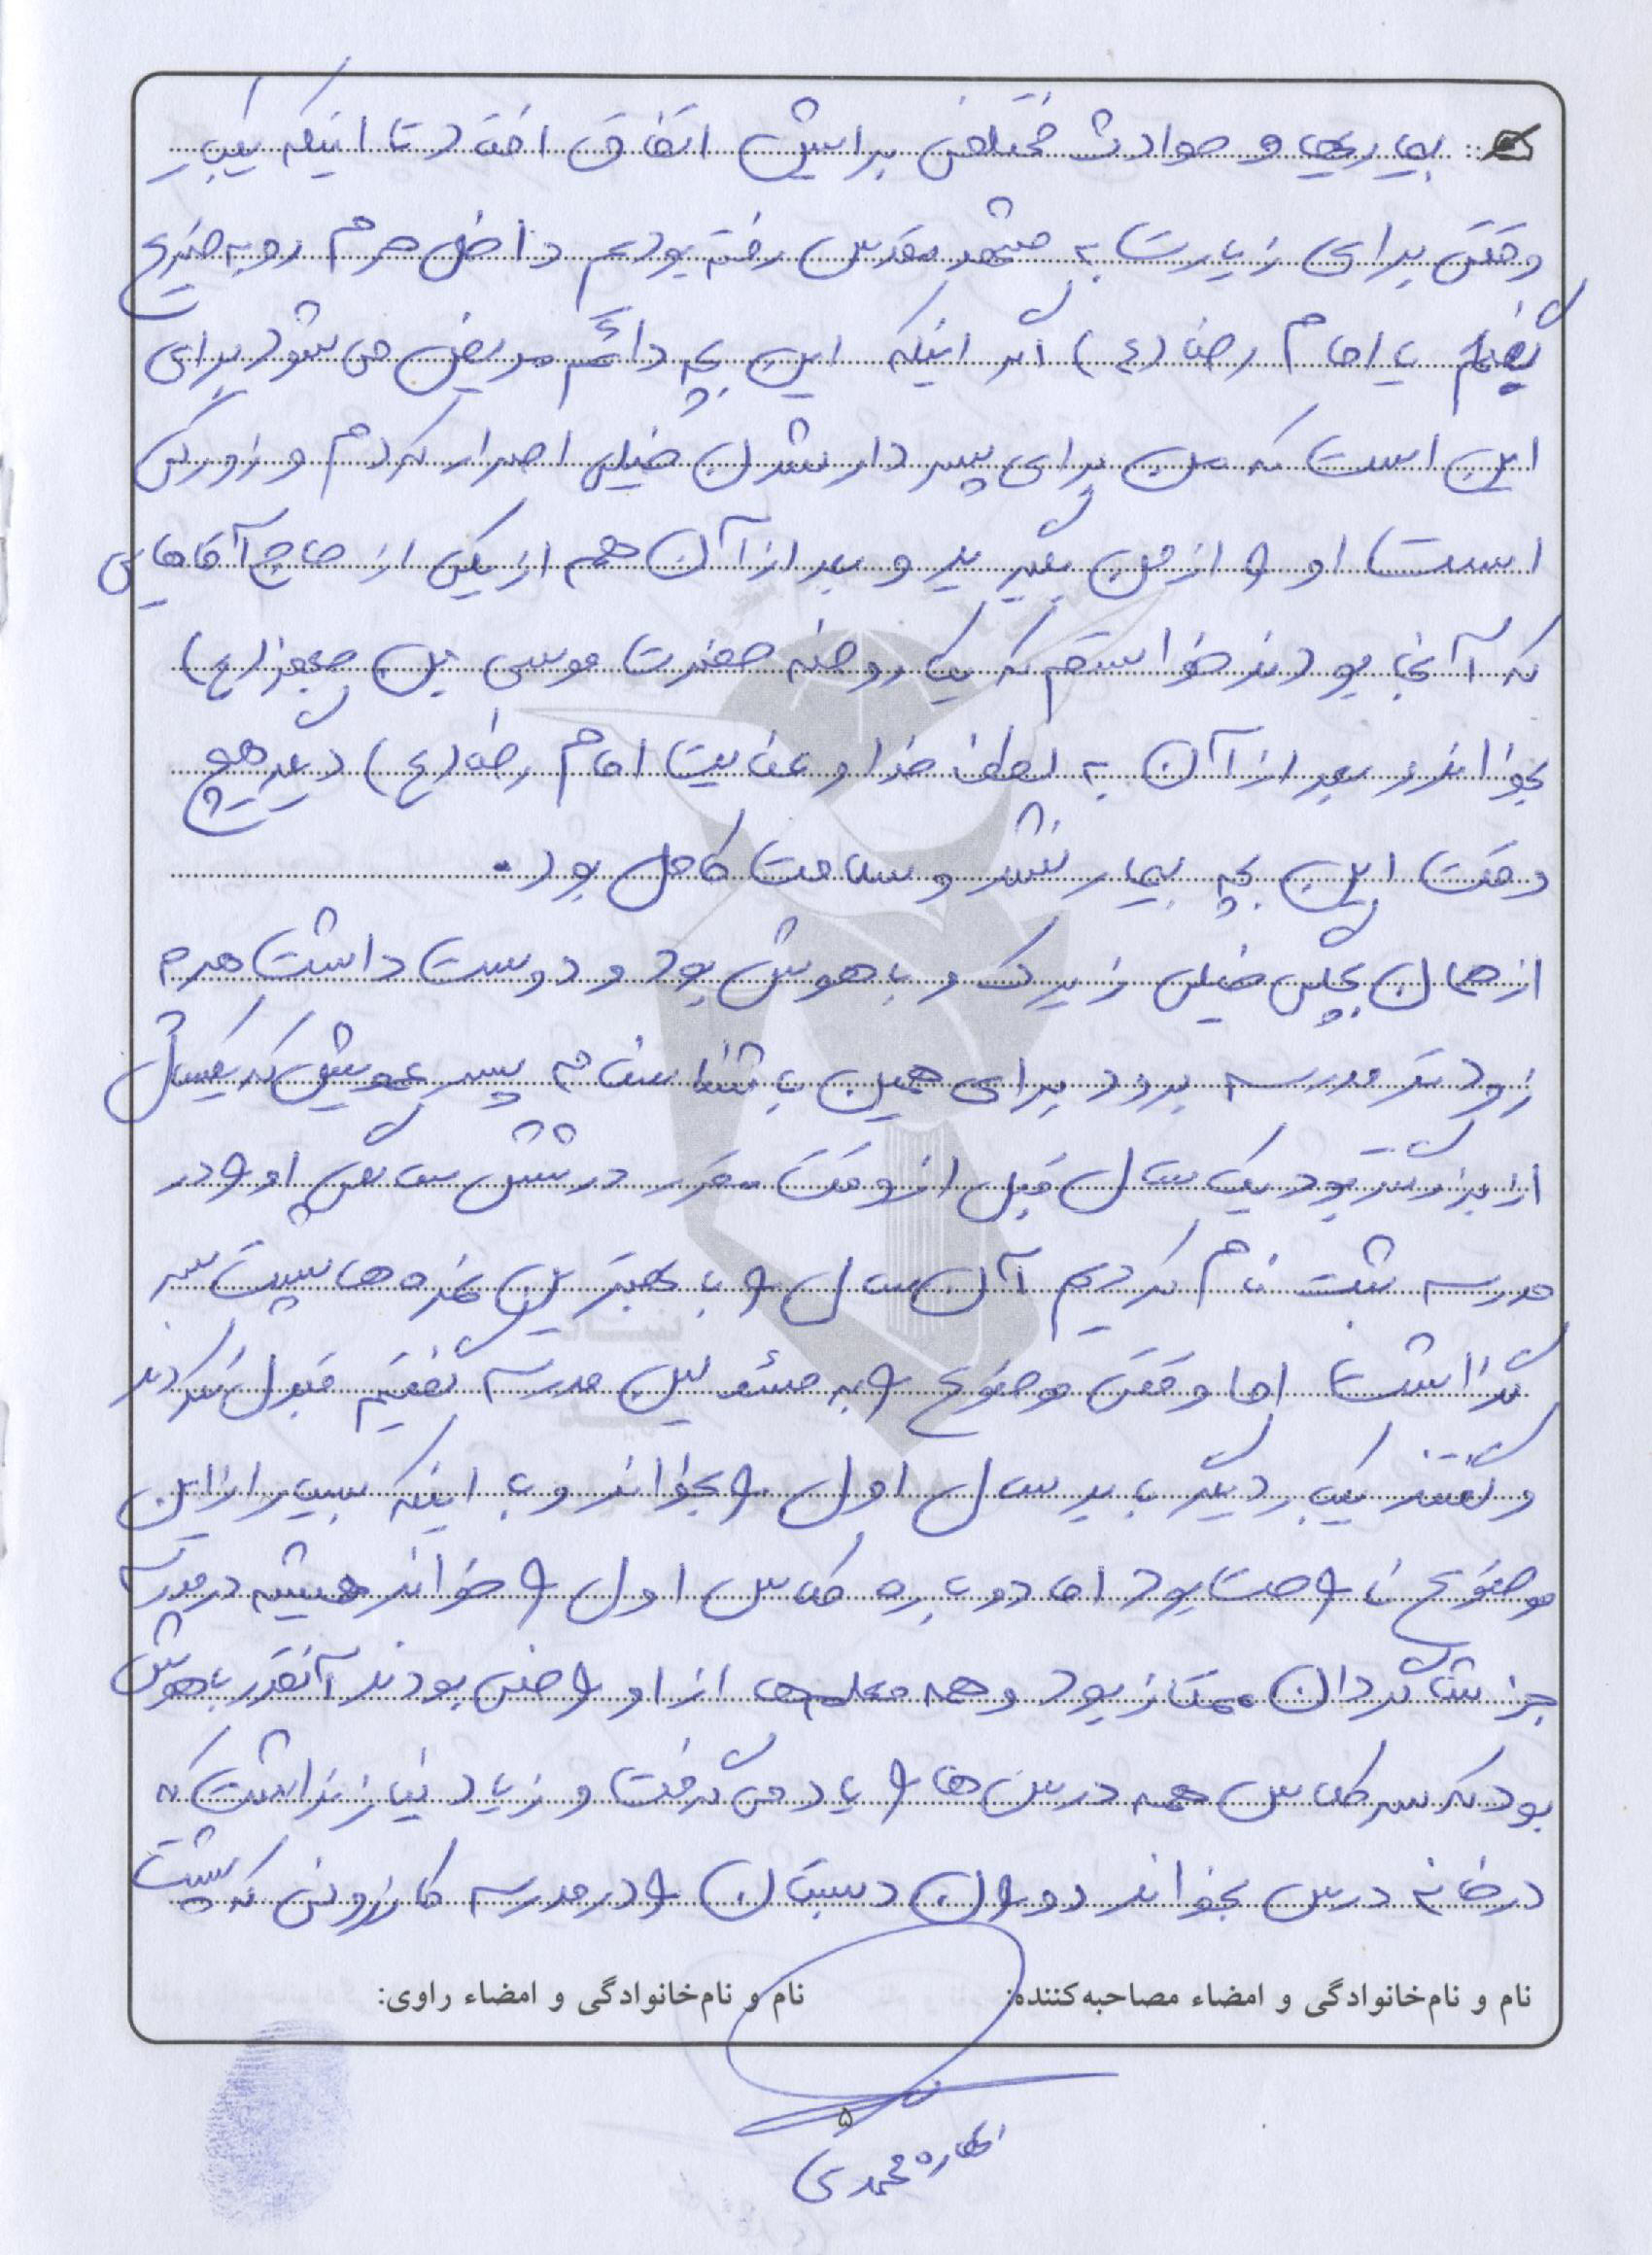 بیماریها و حوادث مختلفی برایش اتفاق افتاد تا اینکه یکبار
وقتی برای زیارت به مشهد مقدس رفته بودیم داخل حرم رو به ضریح
گفتم یا امام رضا (ع) اگر اینکه این بچه دائم مریض می شود برای
این است که من برای پسر دار شدن خیلی اصرار کردم و زورکی
است او را از من بگیرید و بعد از آن هم از یکی از حاج آقاهایی
که آنجا بودند خواستم که یک روضه حضرت موسی بن جعفر (ع)
بخواند و بعد از آن به لطف خدا و عنایت امام رضا (ع) دیگر هیچ
وقت این بچه بیمار نشد و سلامت کامل بود.
از همان بچگی خیلی زیرک و باهوش بود و دوست داشت هرچه
زودتر مدرسه برود برای همین با شناسنامه پسر عمویش که یکسال
از بزرگتر بود یک سال قبل از وقت مقرر در شش سالگی او را در
مدرسه ثبت نام کردیم آن سال را با بهترین نمره ها پشت سر
گذاشت اما وقتی موضوع را به مسئولین مدرسه گفتیم قبول نکردند
و گفتند یکبار دیگر باید سال اول را بخواند و با اینکه بسیار از این
موضوع ناراحت بود اما دوباره کلاس اول را خواند همیشه در مدرسه
جز شاگردان ممتاز بود و همه معلم ها از او راضی بودند آنقدر باهوش
بود که سر کلاس همه درس ها را یاد می گرفت و زیاد نیاز نداشت که
در خانه درس بخواند دوران دبستان را در مدرسه کازرونی که پشت
نام و نام‌خانوادگی و امضاء مصاحبه‌کننده:
نام و نام‌خانوادگی و امضاء راوی:
۵
محمدی